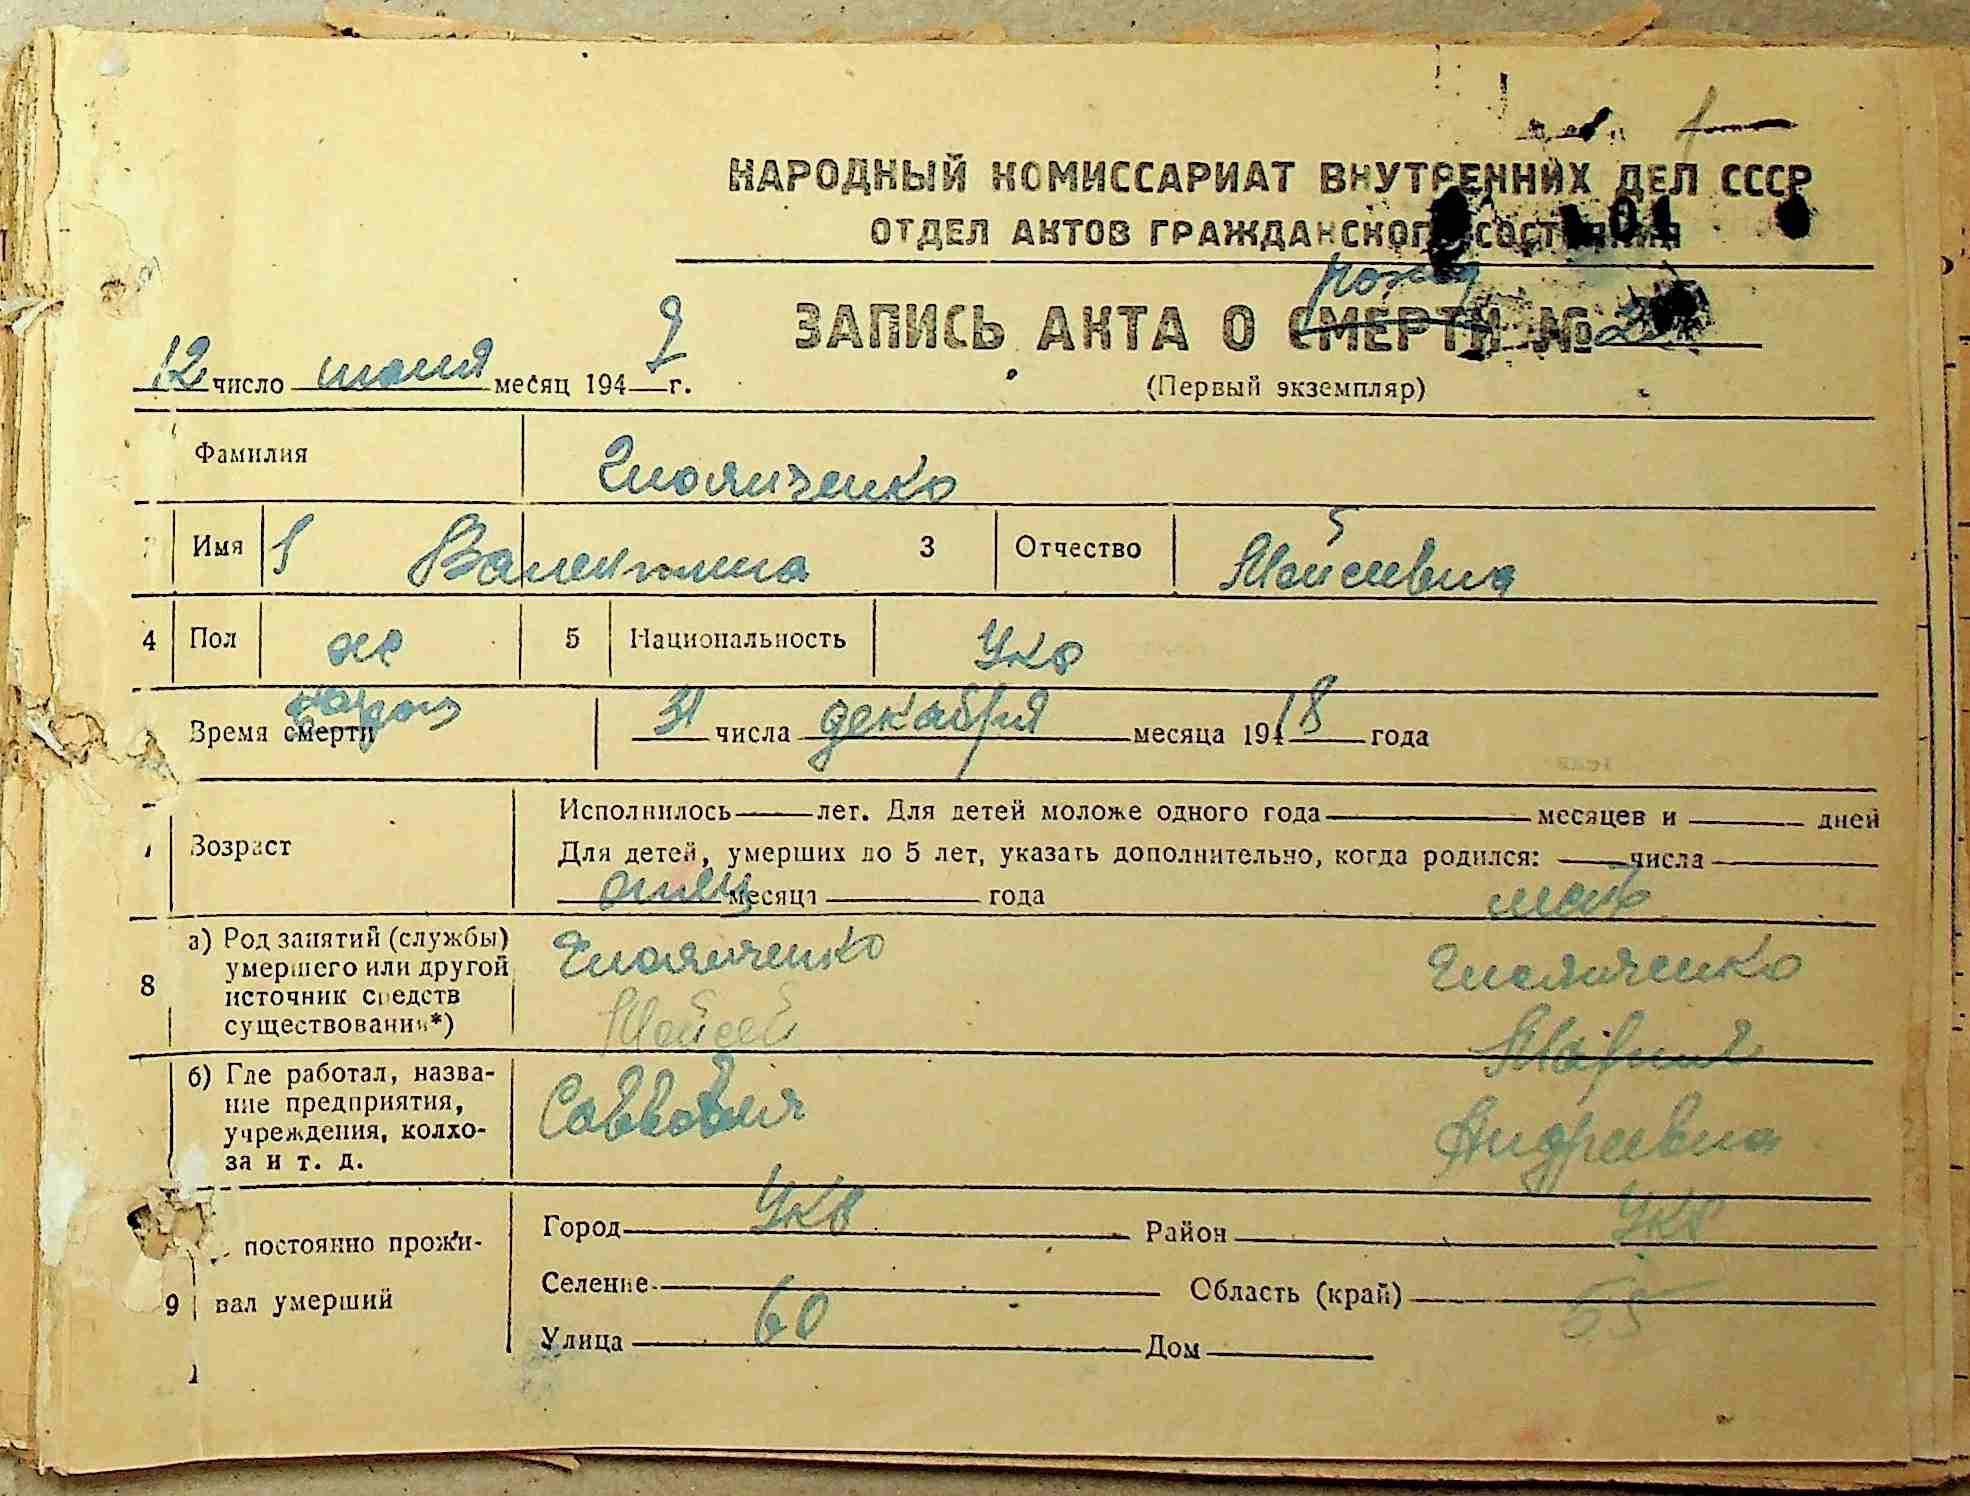 НАРОДНЫЙ КОМИССАРИАТ ВНУТРЕННИХ ДЕЛ СССР
ОТДЕЛ АКТОВ ГРАЖДАНСКОГО СОСТОЯНИЯ
рожд
ЗАПИСЬ АКТА О СМЕРТИ №
12 число июня месяц 1949 г.
(Первый экземпляр)
Фамилия
Имя 1 Валентина 3 Отчество Мойсеевна
4 Пол же 5 Национальность Укр
Время смерти 31 числа декабря месяца 1918 года
7 Возраст Исполнилось лет. Для детей моложе одного года месяцев и дней
Для детей, умерших до 5 лет, указать дополнительно, когда родился: числа
месяца года
отец мать
8 а) Род занятий (службы) умершего или другой источник средств существования*)
Мойсей Мария
б) Где работал, название предприятия, учреждения, колхоза и т. д.
Савков Андреевна
9 постоянно проживал умерший
Город Укр Район Укр
Селение Область (край)
60 55
Улица Дом